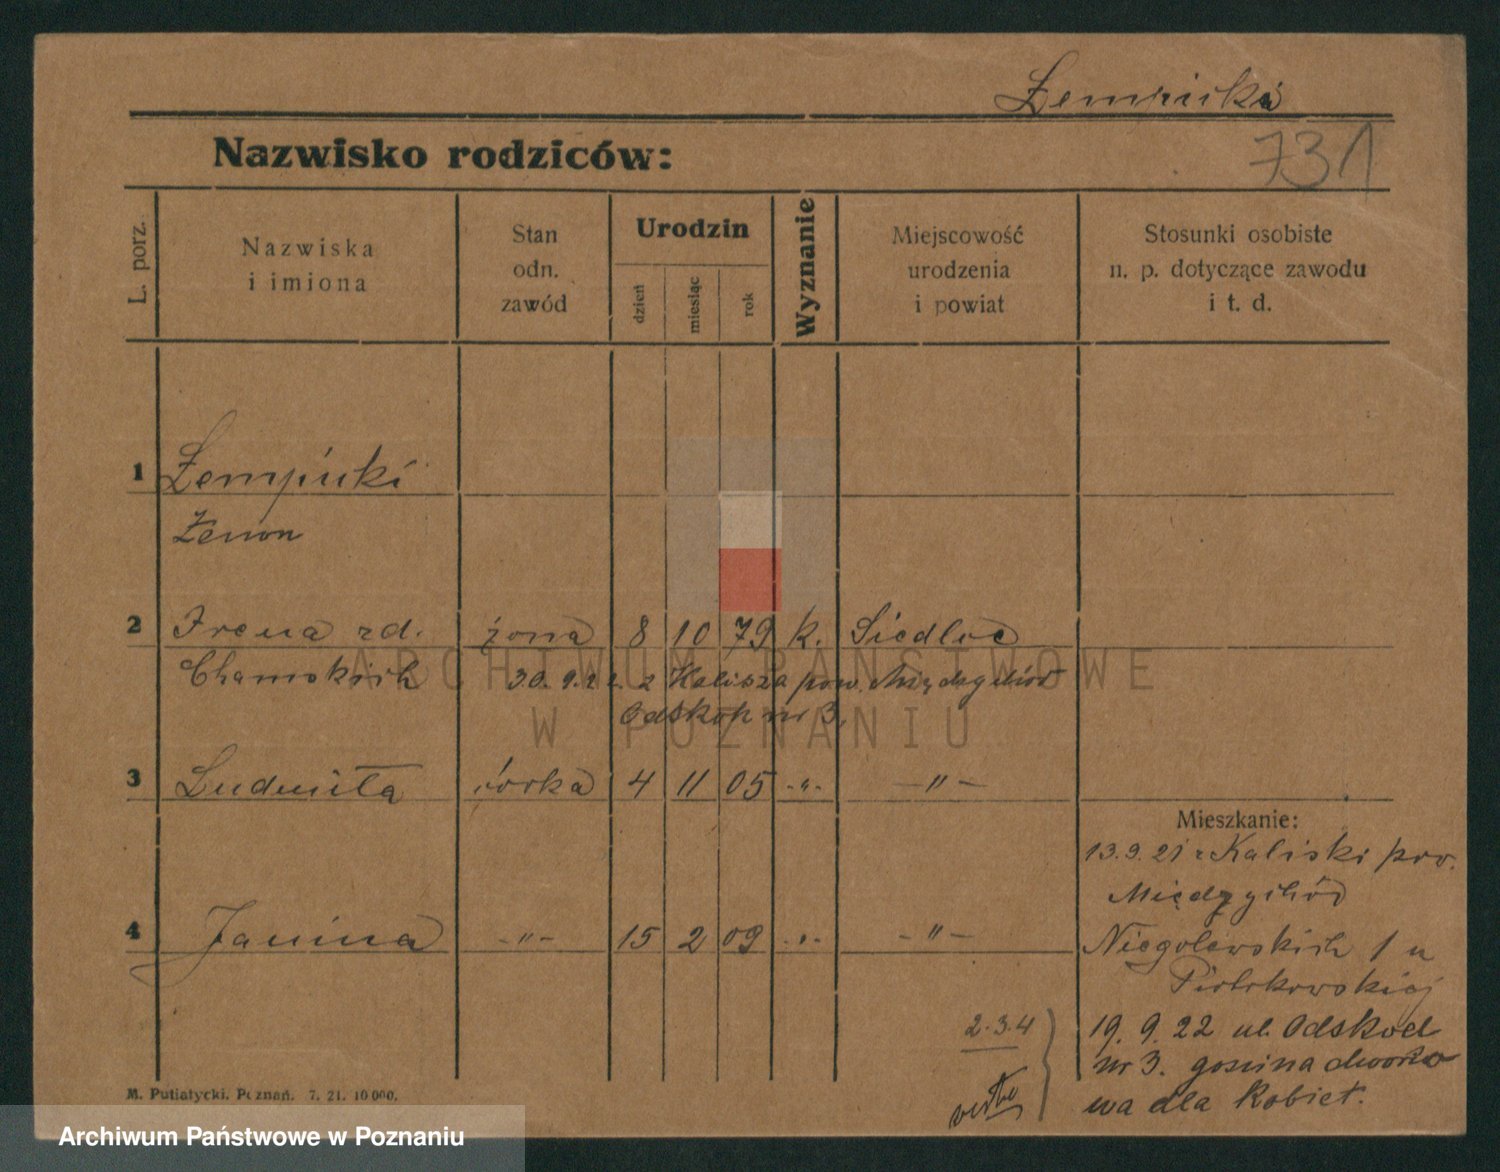 Łempicki
731
Nazwisko rodziców:
L. porz.
Nazwiska
i imiona
Stan
odn.
zawód
Urodzin
dzień
miesiąc
rok
Wyznanie
Miejscowość
urodzenia
i powiat
Stosunki osobiste
n. p. dotyczące zawodu
i t. d.
1 Łempicki
Zenon
2 Irena rd. żona 8 10 79 k. Siedlce
Chamskich 30. 9. 22 z Kalisza pow. Międzychód
Odskok nr 3.
3 Ludmiła córka 4 11 05 -"- -"-
Mieszkanie:
13.9.21 z Kaliski pow.
Międzychód
4 Janina -"- 15 2 09 -"- -"-
Niegolewskich 1 u
Piotrkowskiej
2.3.4 19. 9. 22 ul. Odskok
nr 3. gospoda dworco
wa dla Kobiet.
M. Putiatycki, Poznań. 7. 21. 10 000.
ARCHIWUM PAŃSTWOWE
W POZNANIU
Archiwum Państwowe w Poznaniu